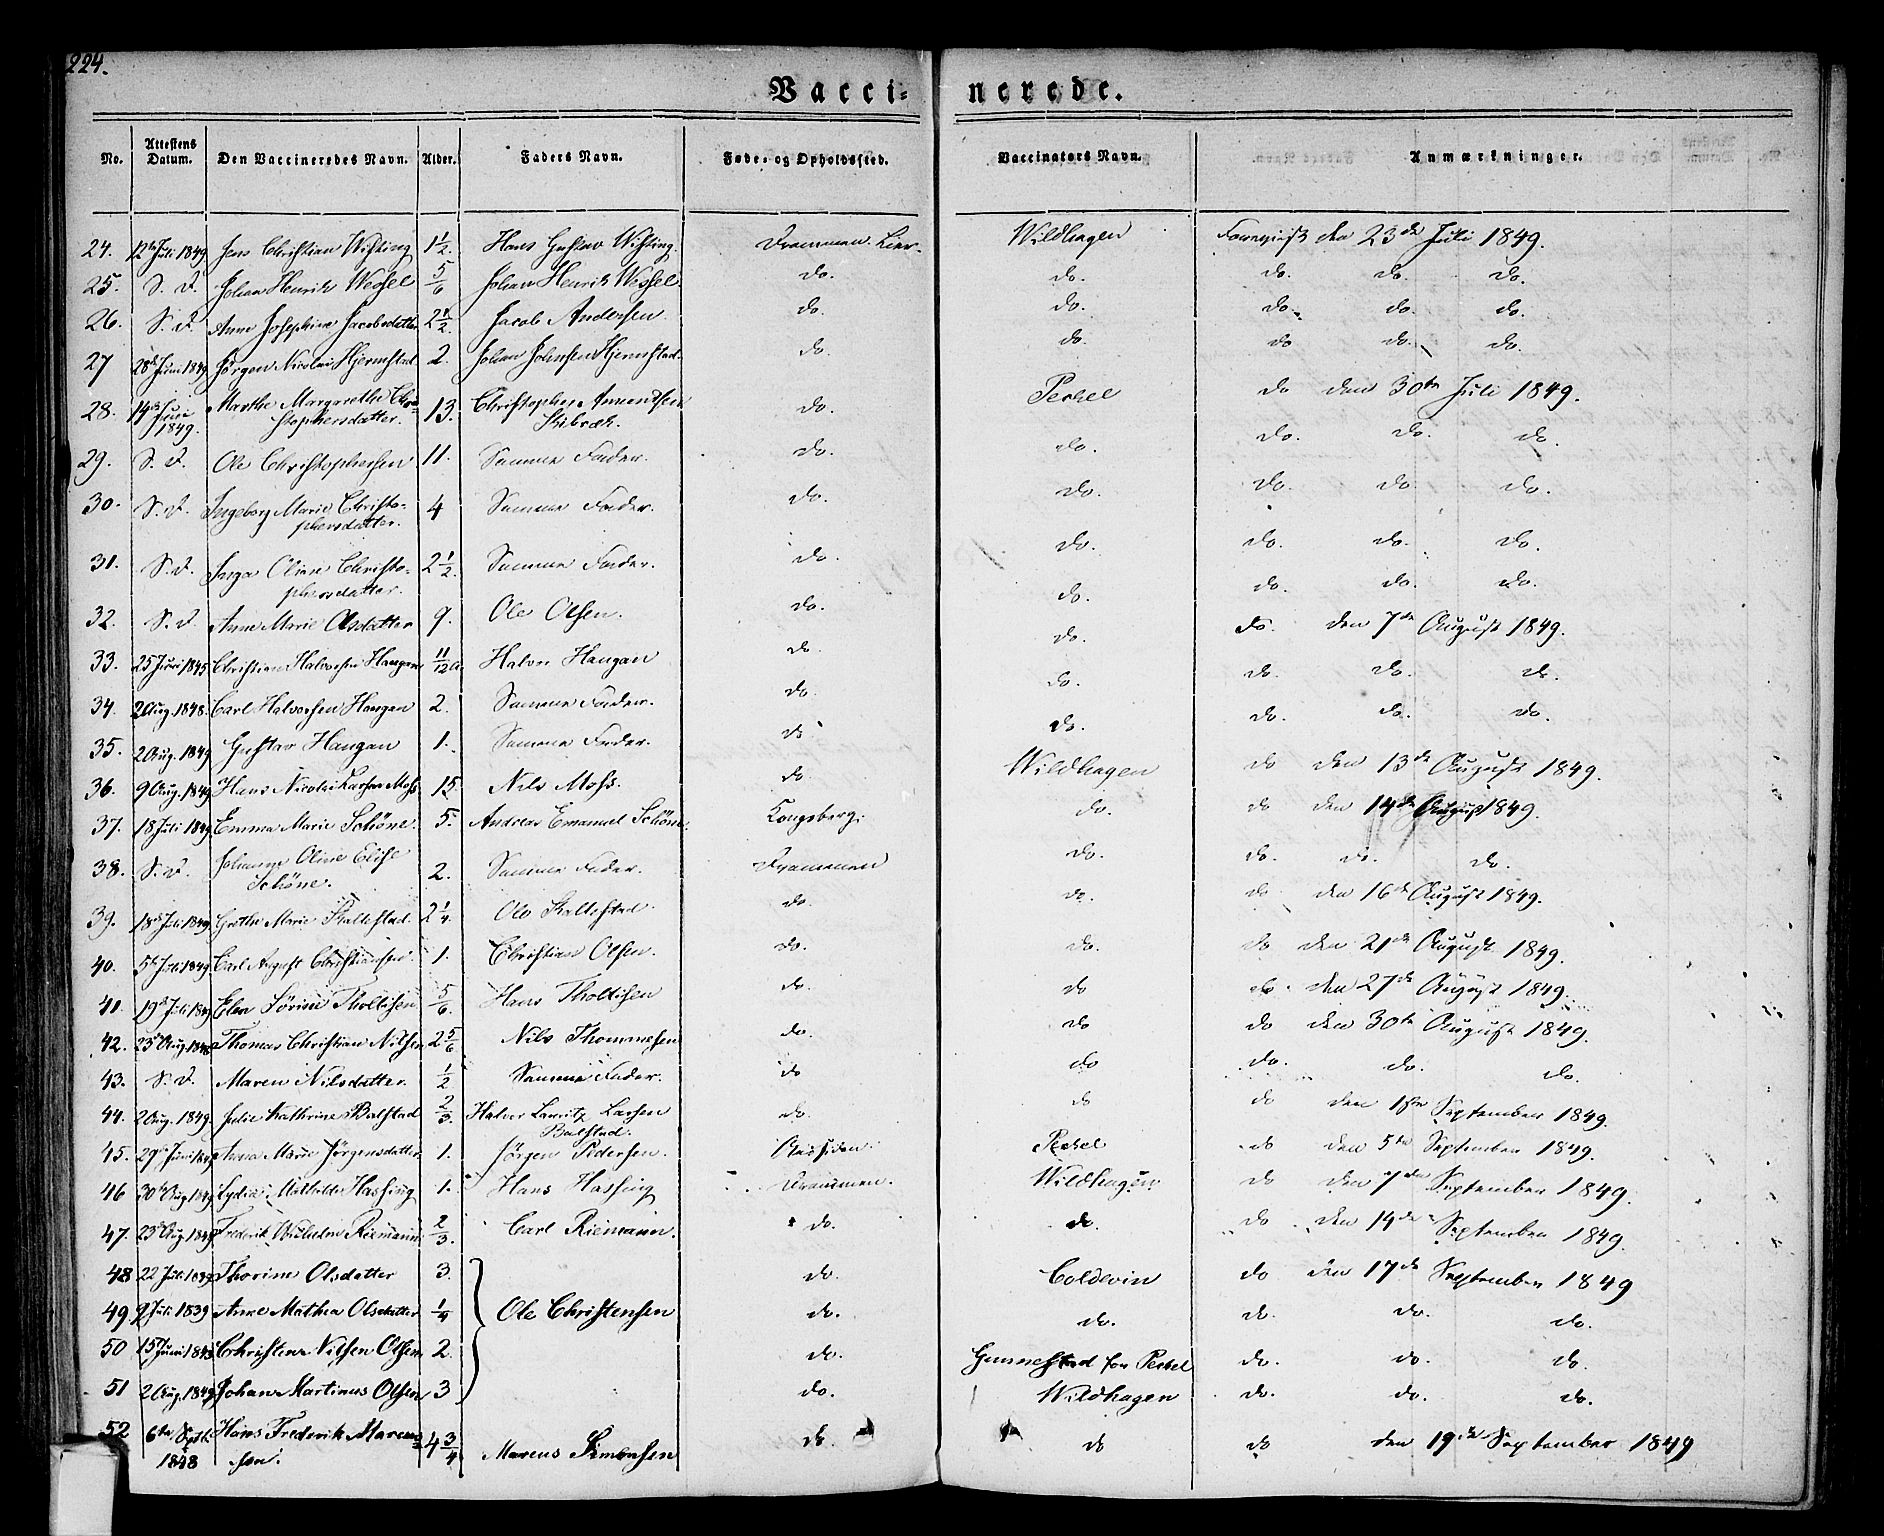 224.
Vacci= nerede.
No. Attestens Datum. Den Vaccineredes Navn. Alder. Faders Navn. Føde- og Opholdssted. Vaccinators Navn. Anmærkninger.
24. 12te Juli 1849 Jens Christian Wisting 1 1/2. Hans Gustav Wisting. Drammen. Lier. Wildhagen Forevist den 23de Juli 1849.
25. S. D. Johan Henrik Wessel 5/6 Johan Henrik Wessel. do. do. do. do. do.
26. S. D. Anne Josephine Jacobsdatter 2 1/2. Jacob Andersen do. do. do. do. do.
27 28de Juni 1849 Jørgen Nicolai Hjermstad 2. Johan Johnsen Hjermstad. do. do. do do. do.
28. 14de Juni 1849. Marthe Margrethe Chri-
stophersdatter. 13. Christopher Amundsen
Skibræk. do. Peckel do den 30te Juli 1849.
29. S. D. Ole Christophersen 11. Samme Fader. do. do. do. do. do.
30. S. D. Ingeborg Marie Christo-
phersdatter. 4 Samme Fader. do. do. do. do. do.
31. S. D. Inga Oline Christo-
phersdatter. 2 1/2. Samme Fader. do. do. do. do. do.
32. S. D. Anne Marie Olsdatter 9. Ole Olsen. do. do. do. do. do.
33. 25 Juni 1845 Christian Halvorsen Haugan 11/12 Halvor Haugan do. do. do. den 7de August 1849.
34. 2 Aug. 1848. Carl Halvorsen Haugan 2. Samme Fader. do. do. do. do. do.
35. 2 Aug. 1849 Gustav Haugan 1. Samme Fader. do do. do. do. do.
36. 9 Aug. 1849 Hans Nicolai Larsen Moss 15. Nils Moss. do. Wildhagen do den 13de August 1849.
37. 18 Juli 1849 Emma Marie Schöne. 5. Andreas Emanuel Schöne. Kongsberg. do. do den 14de August 1849.
38. S. D. Johanne Oline Elise
Schöne. 2. Samme Fader. Drammen do. do. do. do.
39. 18de Juli 1849 Grethe Marie Skallestad. 2 1/4. Ole Skallestad. do. do. do den 16de August 1849.
40. 5te Juli 1849 Carl August Christiansen. 1. Christian Olsen. do. do. do den 21de August 1849.
41. 19de Juli 1849 Elen Sørine Tholtisen 5/6. Hans Tholtisen do. do do. den 27de August 1849.
42. 23de Aug 1848 Thomas Christian Nilsen 2 5/6 Nils Thommesen do. do do den 30te August 1849.
43. S. D. Maren Nilsdatter. 1/2 Samme Fader. do do do. do. do.
44. 2 Aug. 1849. Julie Kathrine Balstad 2/3. Halvor Lauritz Larsen
Balstad. do. do do den 1ste September 1849.
45. 29de Juni 1849 Anna Marie Jörgensdatter 1. Jörgen Pedersen. Peckel do den 5te September 1849.
46 30te Aug 1849 Lydia Mathilde Hassing 1. Hans Hassing Drammen. Wildhagen. do den 7de September 1849.
47. 23de Aug 1849 Frederik Wilhelm Riemann 2/3. Carl Riemann. do. do. do den 14de September 1849.
48 22 Juli 1839 Thorine Olsdatter 3. do. Coldevin do den 17de September 1849
49. 9 Juli 1839 Anne Mathea Olsdatter 1/4 Ole Christensen do. do. do. do. do.
50 15de Juni 1843 Christian Nilsen Olsen 2. do. Gunnestad for Peckel do. do. do.
51 2 Aug. 1849 Johan Martinus Olsen 3 do. Wildhagen do. do. do.
52 6te Septb. 1848 Hans Frederik Marcus-
sen. 4 3/4 Marcus Simonsen do. do do den 19de September 1849